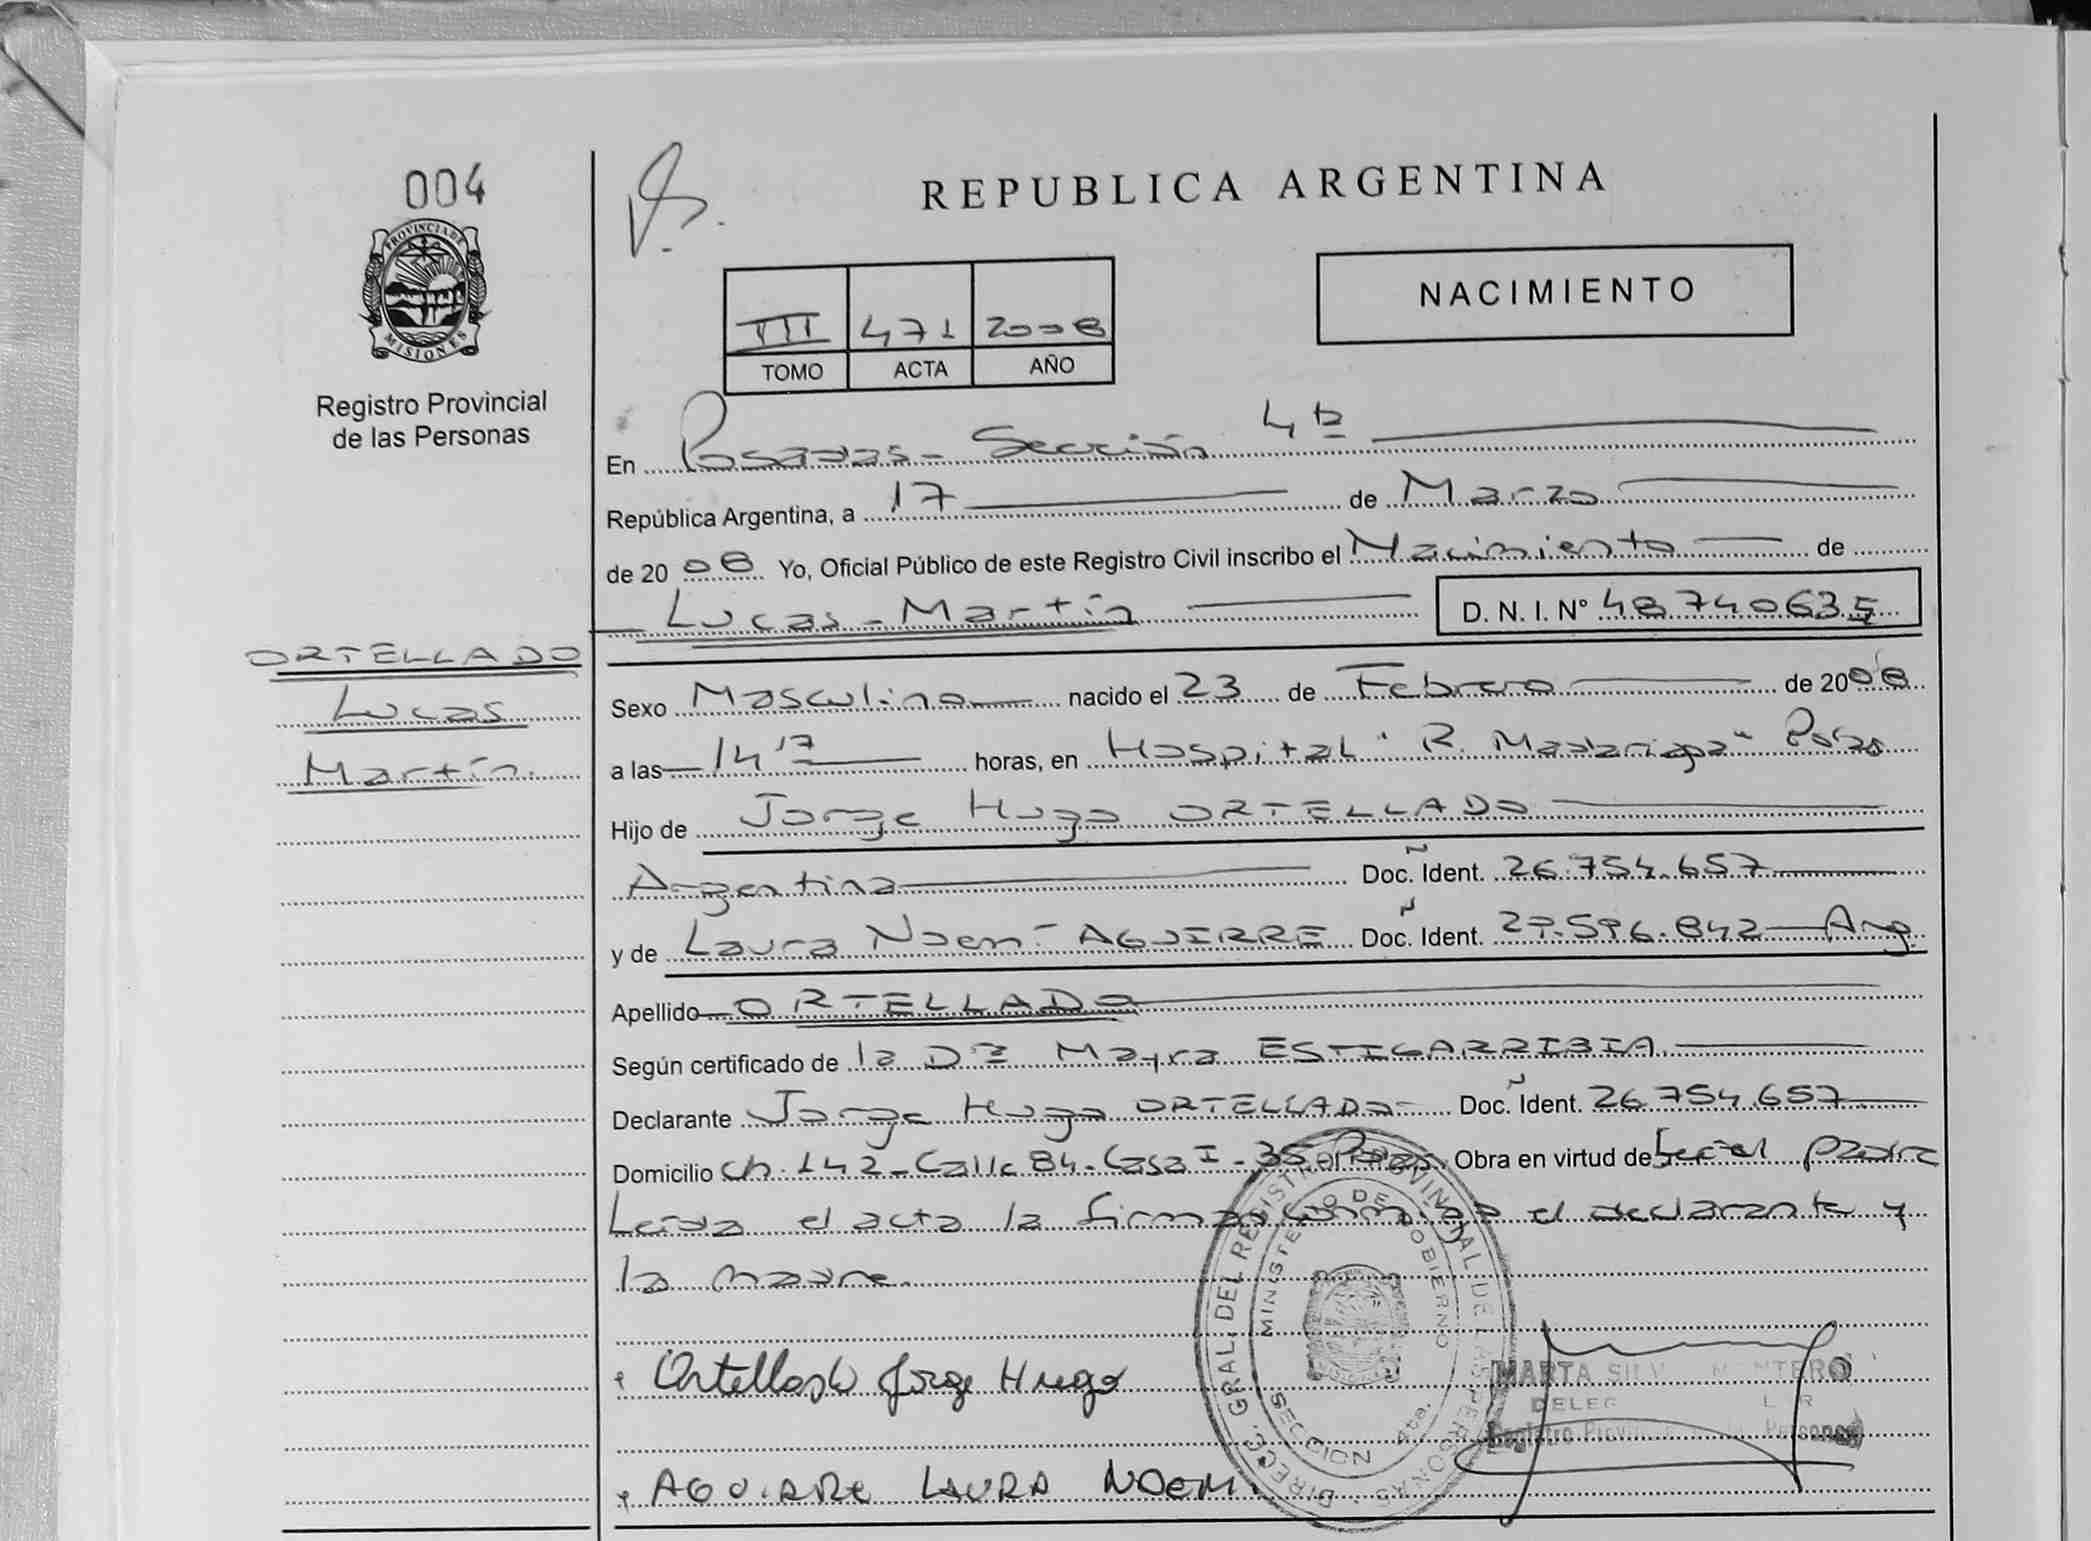 004
PROVINCIA DE
MISIONES
Registro Provincial
de las Personas
ORTELLADO
Lucas
Martín.
REPUBLICA ARGENTINA
III 471 2008
TOMO ACTA AÑO
NACIMIENTO
En Posadas - Sección 4ta
República Argentina, a 17 de Marzo
de 2008 Yo, Oficial Público de este Registro Civil inscribo el Nacimiento de
Lucas - Martín D. N. I. Nº 48740635
Sexo Masculino nacido el 23 de Febrero de 2008
a las 14 17 horas, en Hospital "R. Madariaga" Pdas
Hijo de Jorge Hugo ORTELLADO
Argentina Doc. Ident. 26.754.657
y de Laura Noemí AGUIRRE Doc. Ident. 27.596.842 - Arg.
Apellido ORTELLADO
Según certificado de la Dra Mayra ESTIGARRIBIA
Declarante Jorge Hugo ORTELLADO - Doc. Ident. 26.754.657
Domicilio Ch. 142 - Calle 84 - Casa I - 35 - Pdas. Obra en virtud de ser el padre
Leída el acta la firman conmigo el declarante y
la madre.
Ortellado Jorge Hugo
AGUIRRE LAURA NOEMI
DIRECC. GRAL. DEL REGISTRO PROVINCIAL DE LAS PERSONAS
MINISTERIO DE GOBIERNO
SECCION 4ta.
MARTA MONTERO
Registro Personas